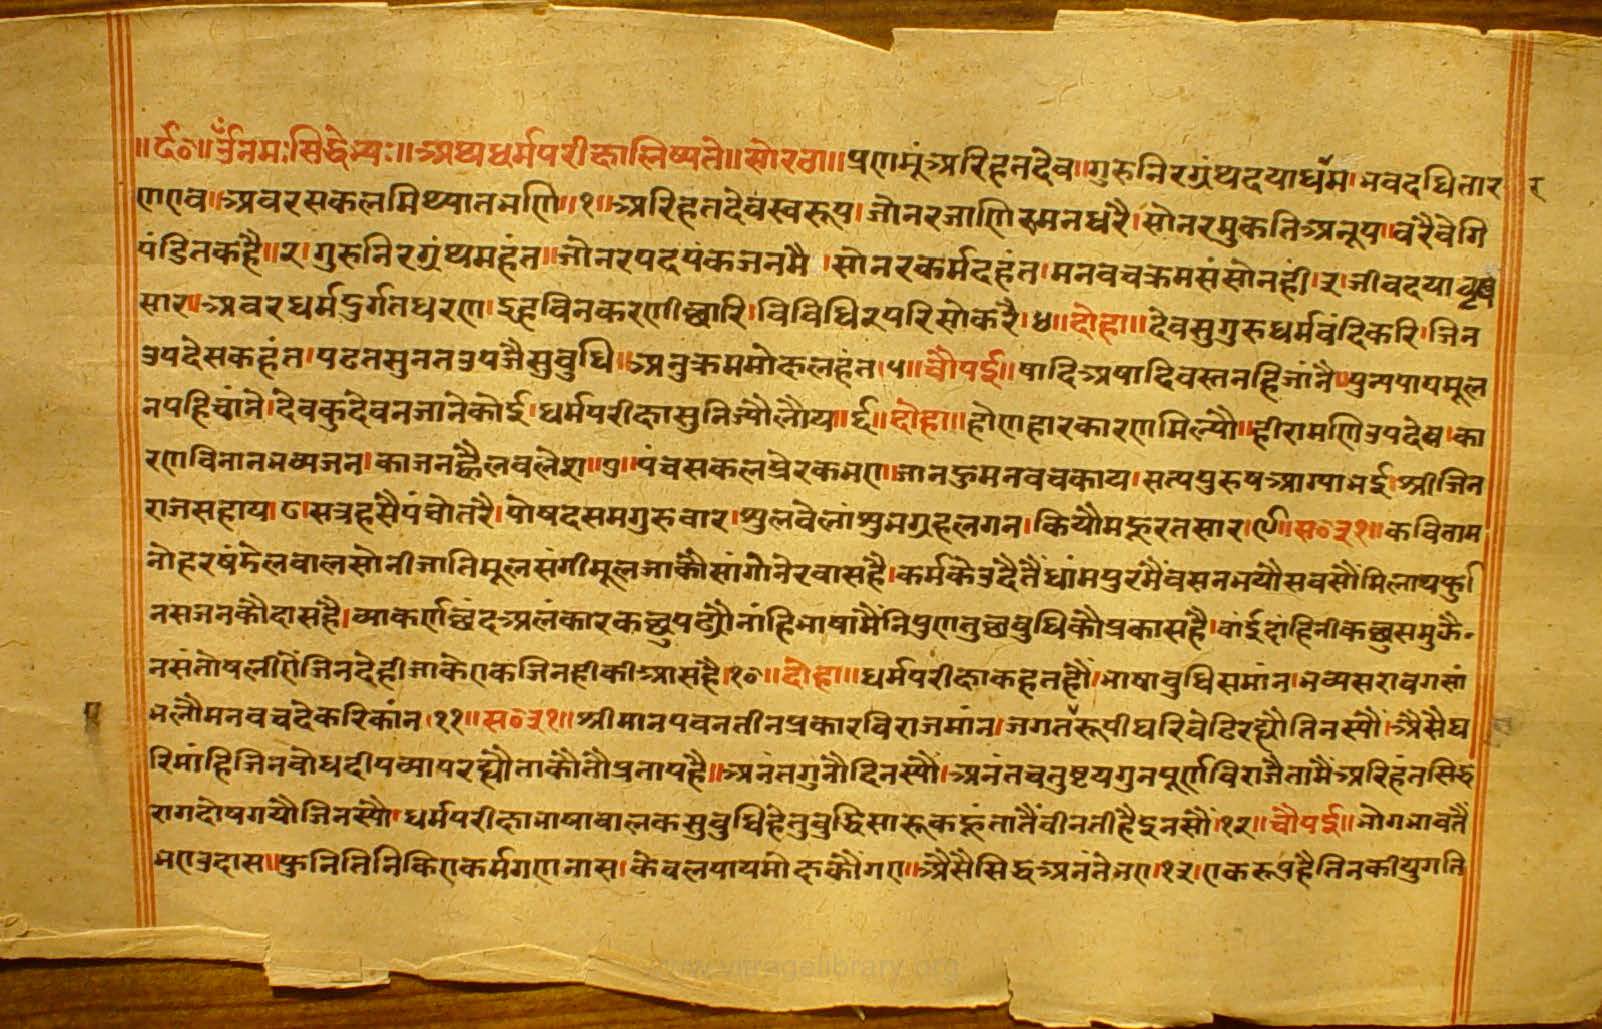 ॥र्द०॥ ॐनमःसिद्धेभ्यः॥अथधर्मपरीक्षालिष्यते॥सोरठा॥प्रणमूंअरिहनदेव॥गुरुनिरग्रंथदयाधर्म।भवदधितार र
णएव॥अवरसकलमिथ्यातभणि॥१॥अरिहतदेवस्वरूप।जोनरजाणि मनधरै।सोनरमुकतिअनूप॥वरैवेगि
पंडितकहै॥२।गुरुनिरग्रंथमहंत॥जोनरपदपंकजनमै ।सोनरकर्मदहंत।मनवचक्रमसंसोनही।३।जीवदया
सार॥अवरधर्मदुर्गतधरण।इहविनकरणीछारि।विविधिरपरिसोकरै।४॥दोहा॥देवसुगुरुधर्मवंदिकरि।जिन
उपदेसकहंत।पढतसुनतउपजैसुबुधि॥अनुक्रममोक्षलहंत।५॥चौपई॥षादिअषादिवस्तनहिजांनै॥पुन्यपापमूल
नपहिचांने।देवकुदेवनजानेकोई।धर्मपरीक्षासुनिज्यौलोय॥६॥दोहा॥होणहारकारणमिल्यौ॥हीरामणिउपदेस।का
रणविनानभव्यजन।काजनह्वैलवलेश॥७॥पंचसकलप्रेरकभए॥जानहुमनवचकाय।सत्यपुरुषआग्याभई।श्रीजिन
राजसहाय।८।सत्रहसैपंचोतरै।पोषदसमगुरुवार।शुलवेलांशुभग्रहलगन।कियौमहूरतसार।९॥स०३१॥कवितांम
नोहरषंडेलवालसोनीजातिमूलसंगीमूलजाकौसांगोनेरवासहै।कर्मकेउदैतैंधांमपुरमैंवसनभयौसवसौंमिलाथफुनि
नसजनकौदासहै।व्याकर्णछंदअलंकारकछुपढ्यौनांहिभाषांमैंनिपुणतुछबुधिकौप्रकासहै।वांईदांहिनीकछुसमुकै॰
नसंतोषलीऐंजिनदेहीजाकेएकजिनहीकीआसहै।१०॥दोहा॥धर्मपरीक्षाकहतहौं।भाषाबुधिसमांन।भव्यसरावगसां
भलौमनवचदेकरिकांन।११॥स०३१॥श्रीमानपवनतीनप्रकारविराजमांन।जगतरूपीघरिवेढिरह्यौतिनस्यौं।ऐसैघ
रिमांहिजिनबोधदीपव्यापरह्यौताकौतौप्रतापहै॥अनंतगुनौदिनस्यौं।अनंतचतुष्टयगुनपूर्णविराजैतामैंअरिहंतसिद्ध
रागदोषगयौजिनस्यौ॥धर्मपरीक्षाभाषाबालकसुबुधिहेतुबुद्धिसारूकहूंतातैंवीनतीहैइनसौं॥१२॥चौपई॥भोगभावतैं
भएउदास॥फुनितिनिकिएकर्मगणनास।केवलपायमोक्षकौंगए॥ऐसैसिद्धअनंतेभए।१३।एकरूप्रहैतिनकीयुगति